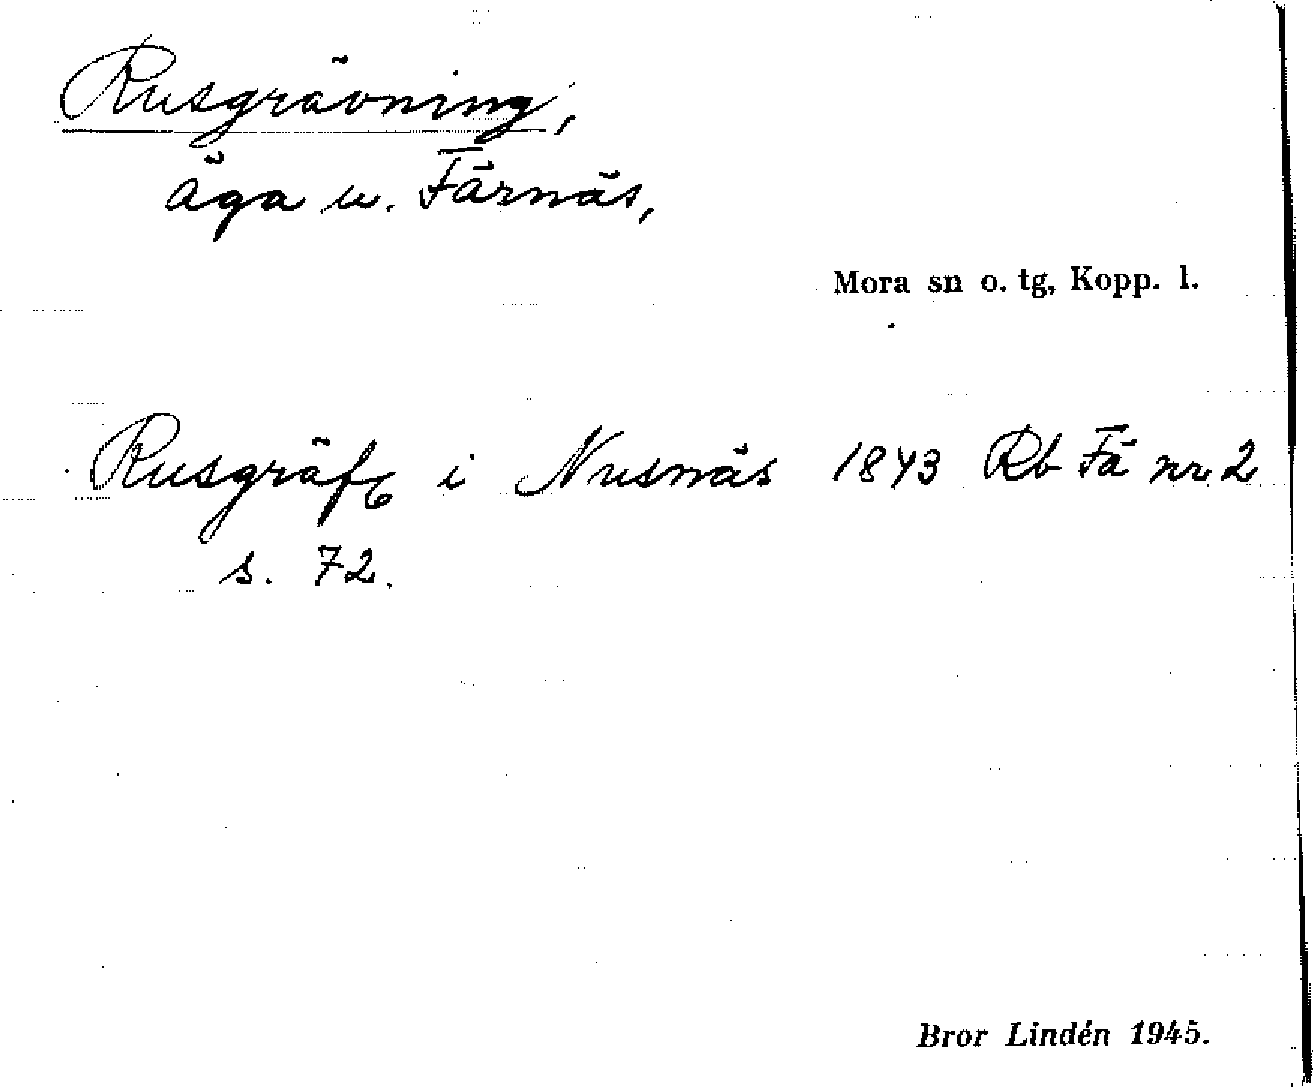 Rusgrävning,
äga u. Färnäs,
Mora sn o. tg, Kopp. l.
Rusgräfg i Nusnäs 1843 Rb Fä nr 2
s. 72.
Bror Lindén 1945.